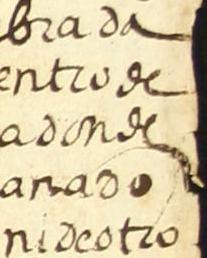 brada
entro de
adonde
anado
ni de otro